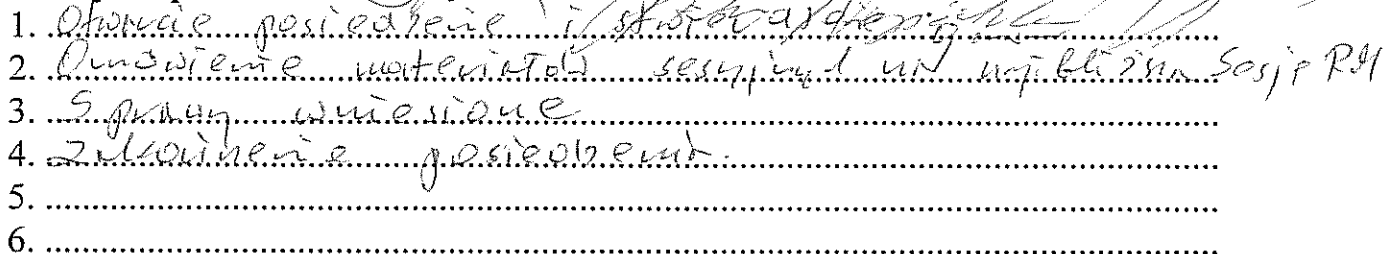 1. Otwarcie posiedzenie i
2. Omówienie materiałów sesyjnych na najbliższą Sesję RM
3. Sprawy wniesione
4. Zakończenie posiedzenia.
5.
6.